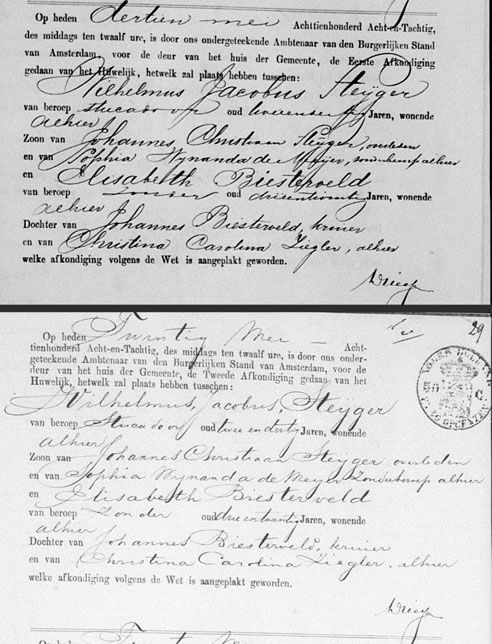 Op heden dertien mei Achttienhonderd Acht-en-Tachtig,
des middags ten twaalf ure, is door ons ondergeteekende Ambtenaar van den Burgerlijken Stand
van Amsterdam, voor de deur van het huis der Gemeente, de Eerste Afkondiging
gedaan van het Huwelijk, hetwelk zal plaats hebben tusschen:
Wilhelmus Jacobus Steijger
van beroep stucadoor oud Jaren, wonende
alhier
Zoon van Johannes Christiaan Steijger, overleden
en van Sophia Wijnanda de Meijer, alhier
en Elisabeth Biesterveld
van beroep zonder oud drieentwintig Jaren, wonende
alhier
Dochter van Johannes Biesterveld, kruier
en van Christina Carolina Ziegler, alhier
welke afkondiging volgens de Wet is aangeplakt geworden.
29
Op heden Twintig Mei Acht-
tienhonderd Acht-en-Tachtig, des middags ten twaalf ure, is door ons onder-
geteekende Ambtenaar van den Burgerlijken Stand van Amsterdam, voor de
deur van het huis der Gemeente, de Tweede Afkondiging gedaan van het
Huwelijk, hetwelk zal plaats hebben tusschen:
Wilhelmus, Jacobus, Steijger
van beroep Stucadoor oud twee en dertig Jaren, wonende
alhier
Zoon van Johannes Christiaan Steijger overleden
en van Sophia Wijnanda de Meijer alhier
en Elisabeth Biesterveld
van beroep Zonder oud drieentwintig Jaren, wonende
alhier
Dochter van Johannes Biesterveld, kruier
en van Christina Carolina Ziegler, alhier
welke afkondiging volgens de Wet is aangeplakt geworden.